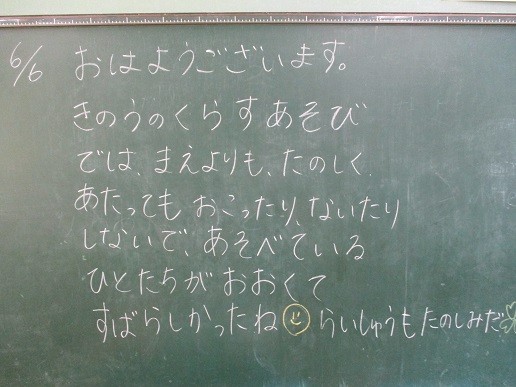 6/6 おはようございます。
きのうのくらすあそび
では、まえよりも、たのしく、
あたっても おこったり、ないたり
しないで、あそべている
ひとたちが おおくて
すばらしかったね らいしゅうもたのしみだ